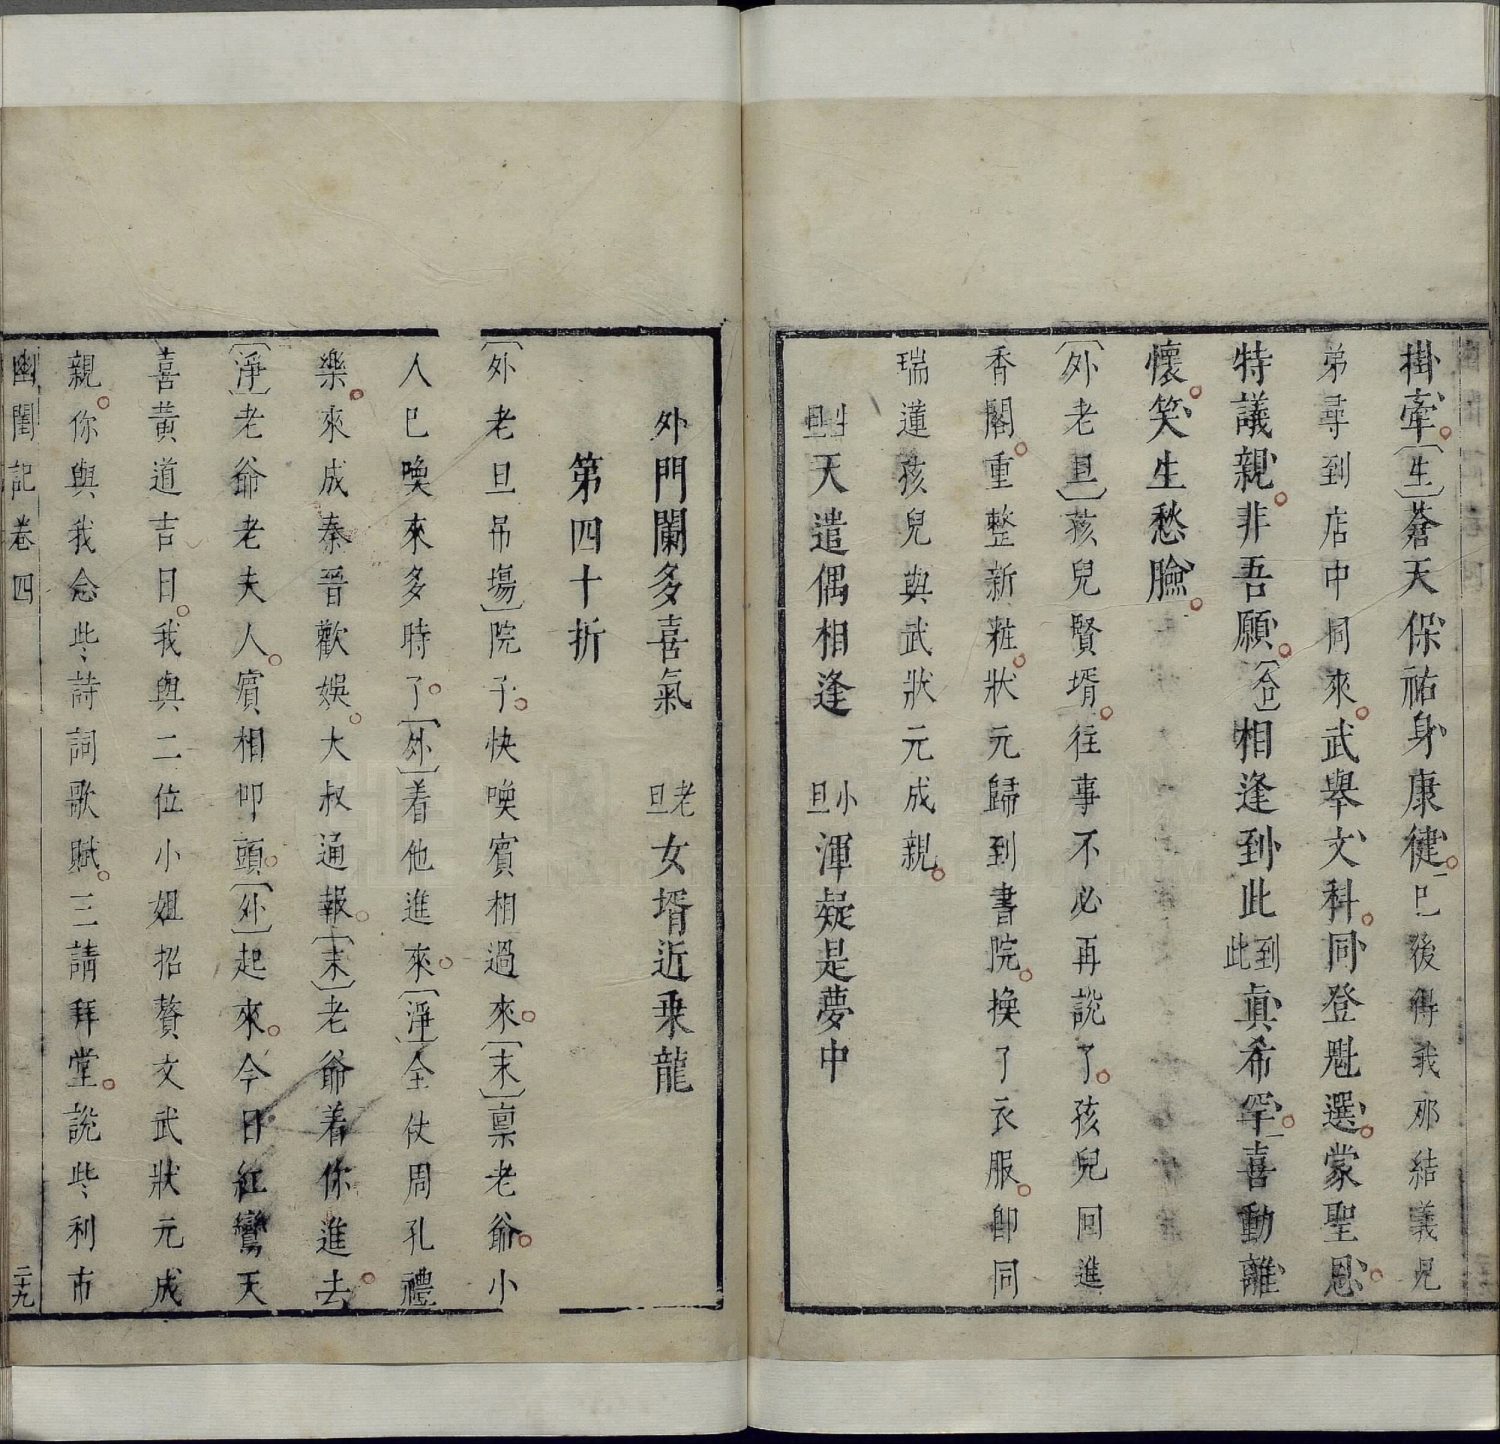 掛牽〔生〕蒼天保祐身康健巳後得我那結義兄
弟尋到店中同來武舉文科同登魁選蒙聖恩
特議親非吾願〔合〕相逢到此到此眞希罕喜動離
懷笑生愁臉
〔外老旦〕孩兒賢壻往事不必再説了孩兒回進
香閣重整新粧狀元歸到書院換了衣服卽同
瑞蓮孩兒與武狀元成親
生旦天遣偶相逢 小旦渾疑是夢中
外門闌多喜氣 老旦女壻近乗龍
第四十折
〔外老旦吊場〕院子快喚賓相過來〔末〕禀老爺小
人巳喚來多時了〔外〕着他進來〔淨〕全仗周孔禮
樂來成秦晉歡娛大叔通報〔末〕老爺着你進去
〔淨〕老爺老夫人賓相叩頭〔外〕起來今日紅鸞天
喜黃道吉日我與二位小姐招贅文武狀元成
親你與我念些詩詞歌賦三請拜堂説些利市
幽閨記卷四
二十九